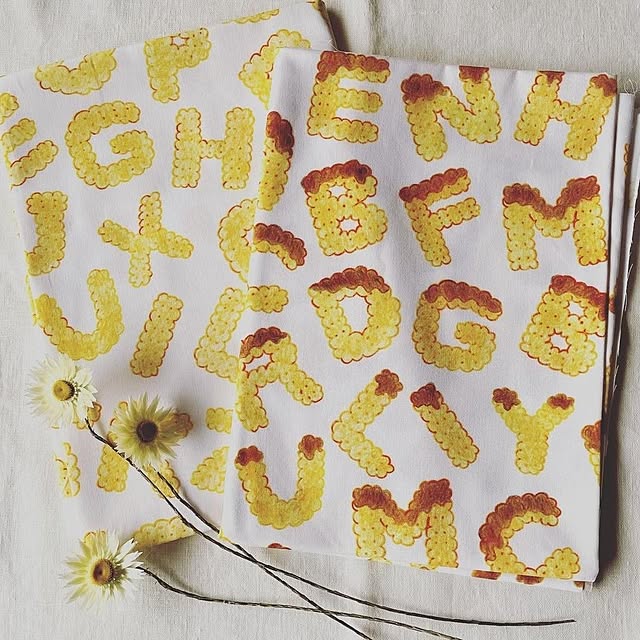 P
G H
J X
U I L
E N H
B F M
D G B
R L I Y
U M C